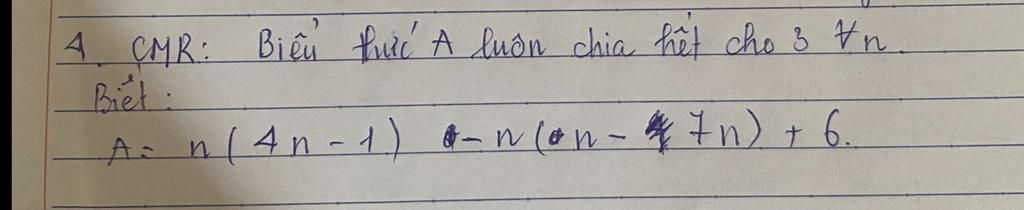 4. CMR: Biểu thức A luôn chia hết cho 3 ∀n.
Biết:
A = n(4n - 1) - n(n - 7n) + 6.